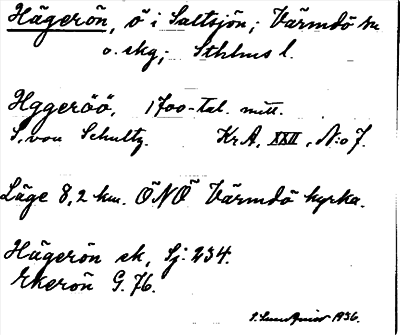 Hägerön, ö i Saltsjön; Värmdö sn
o. skg; Sthlms l.
Hggeröö, 1700-tal. mitt.
S. von Schultz. Kr A, XXII, N:o 7.
Läge 8,2 km. ÖNÖ Värmdö kyrka.
Hägerön sk, Sj. 234.
Ekerön G. 76.
S. Lundqvist 1936.